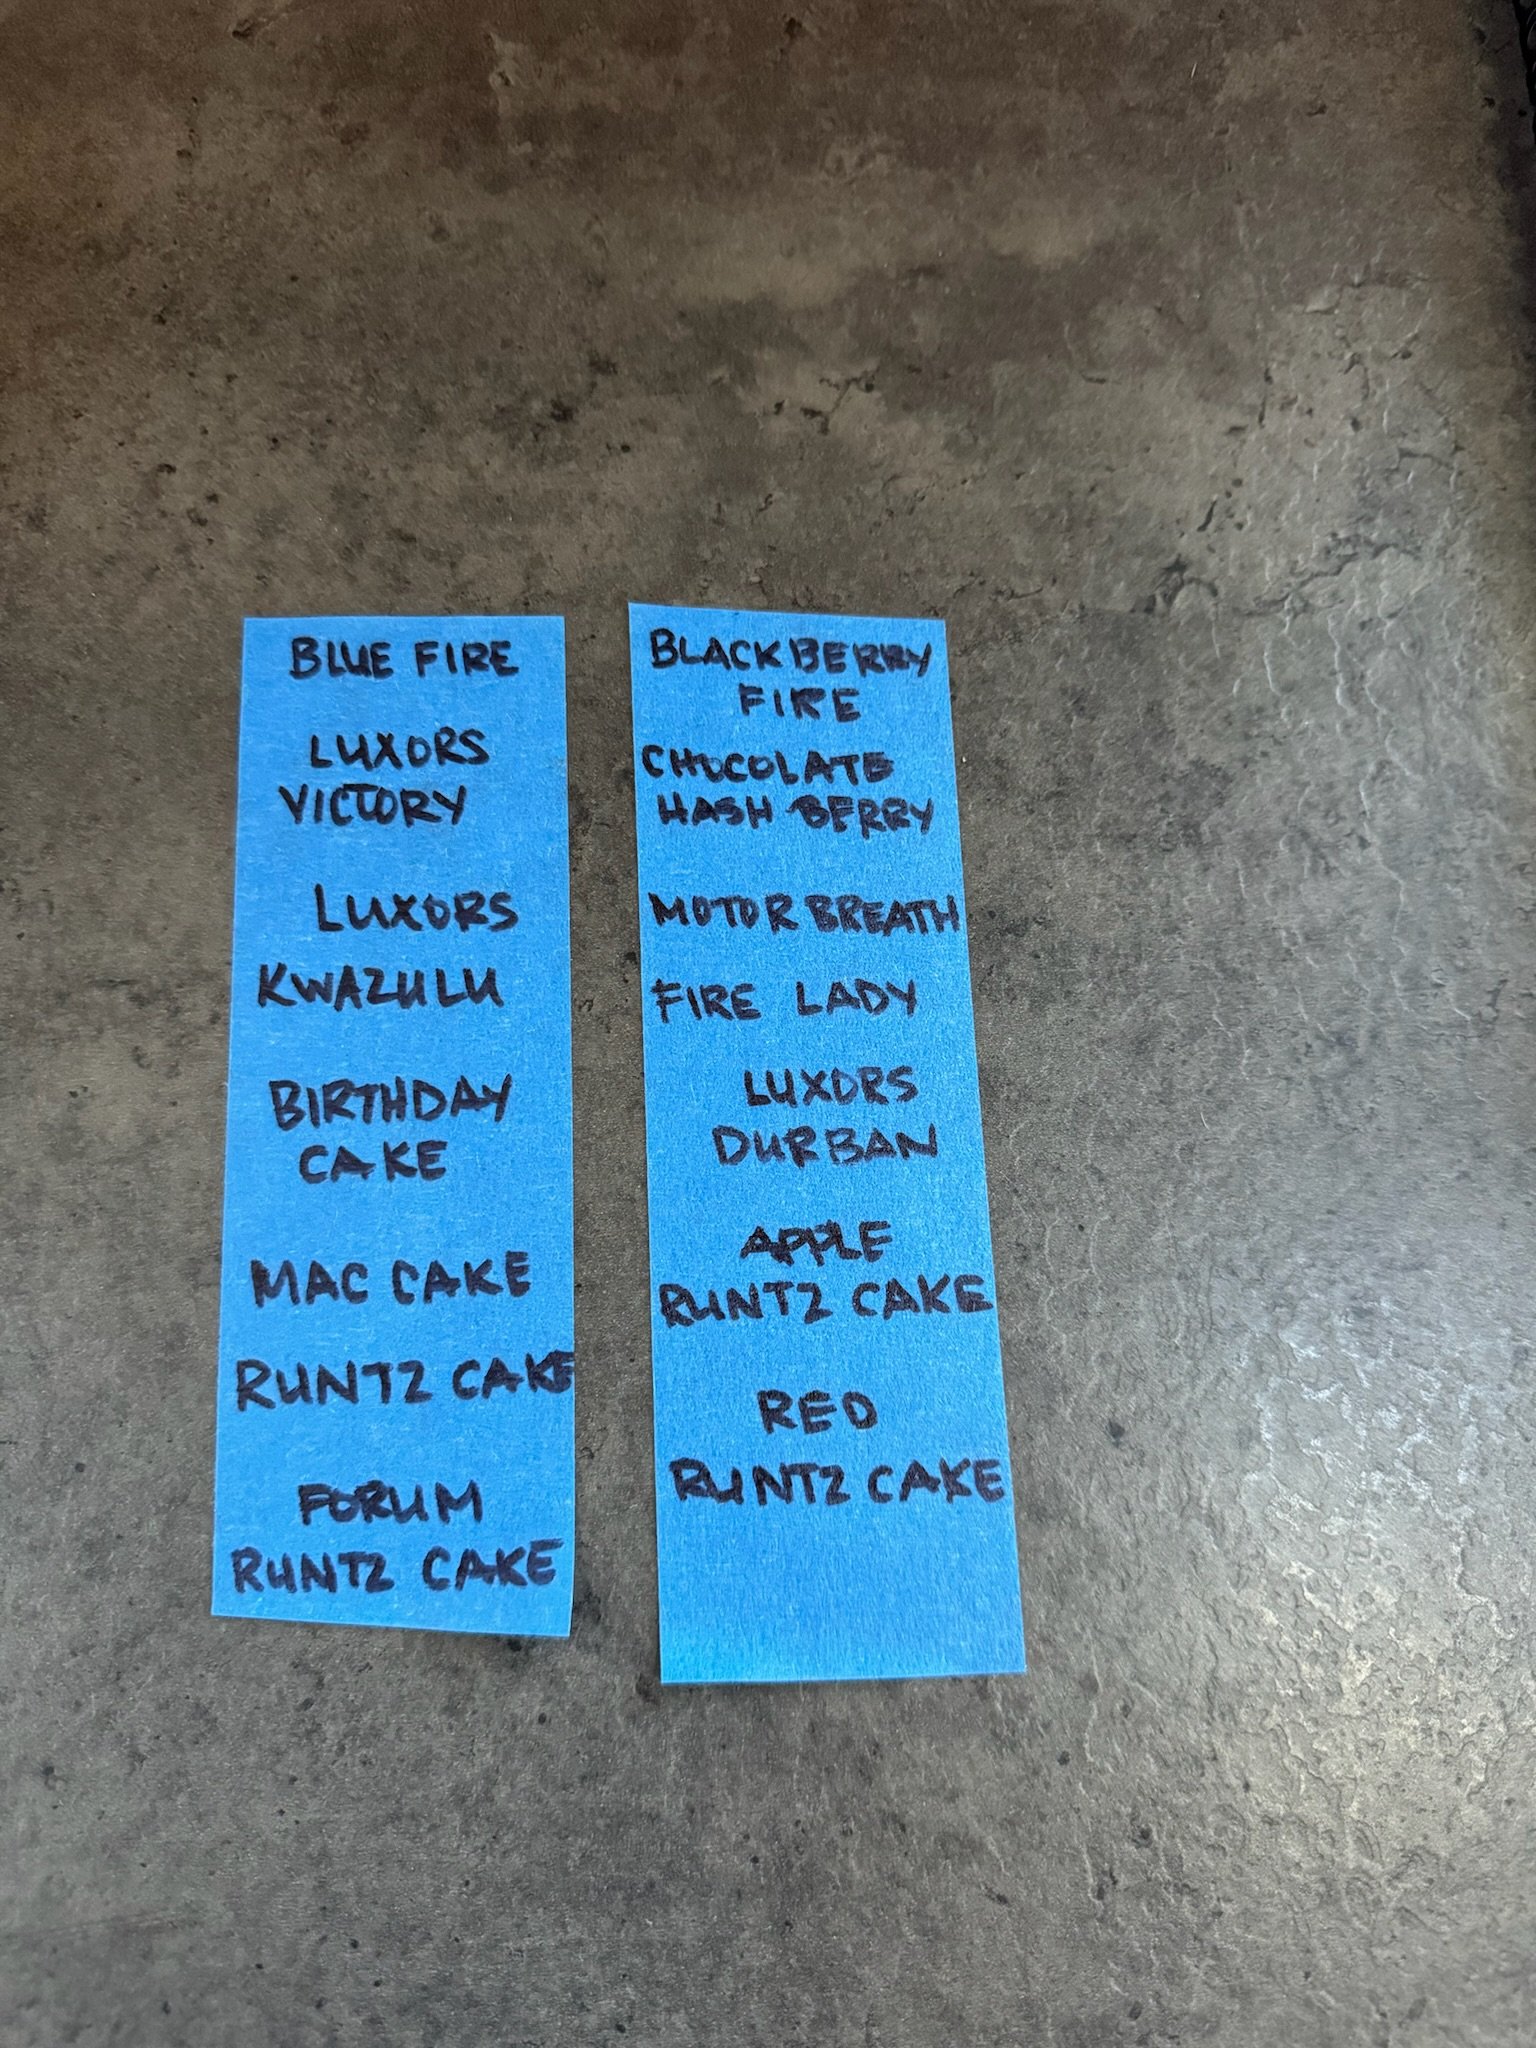 BLUE FIRE
LUXORS
VICTORY
LUXORS
KWAZULU
BIRTHDAY
CAKE
MAC CAKE
RUNTZ CAKE
FORUM
RUNTZ CAKE
BLACKBERRY
FIRE
CHOCOLATE
HASH BERRY
MOTOR BREATH
FIRE LADY
LUXORS
DURBAN
APPLE
RUNTZ CAKE
RED
RUNTZ CAKE